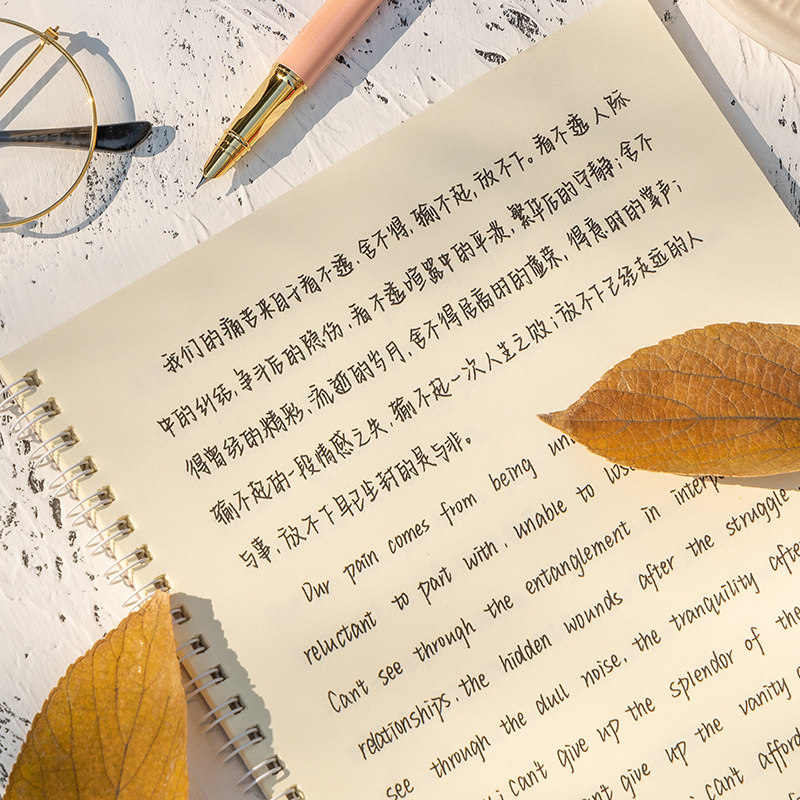 我们的痛苦来自于看不透,舍不得,输不起,放不下。看不透人际
中的纠结,争斗后的隐伤,看不透喧嚣中的平淡,繁华后的宁静;舍不
得曾经的精彩,流逝的岁月,舍不得居高时的虚荣,得意时的掌声;
输不起的一段情感之失,输不起一次人生之败;放不下已经走远的人
与事,放不下早已尘封的是与非。
Our pain comes from being
reluctant to part with, unable to
Can't see through the entanglement in
relationships, the hidden wounds after the struggle
see through the dull noise, the tranquility
can't give up the splendor of the
give up the vanity
can't afford